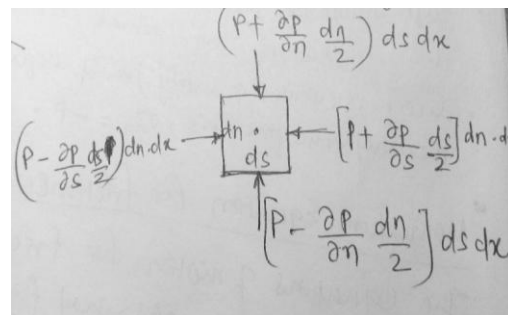 (P + ∂P/∂n dn/2) ds dx
(P - ∂P/∂s ds/2) dn·dx
dn ·
ds
[P + ∂P/∂s ds/2] dn·d
[P - ∂P/∂n dn/2] ds dx